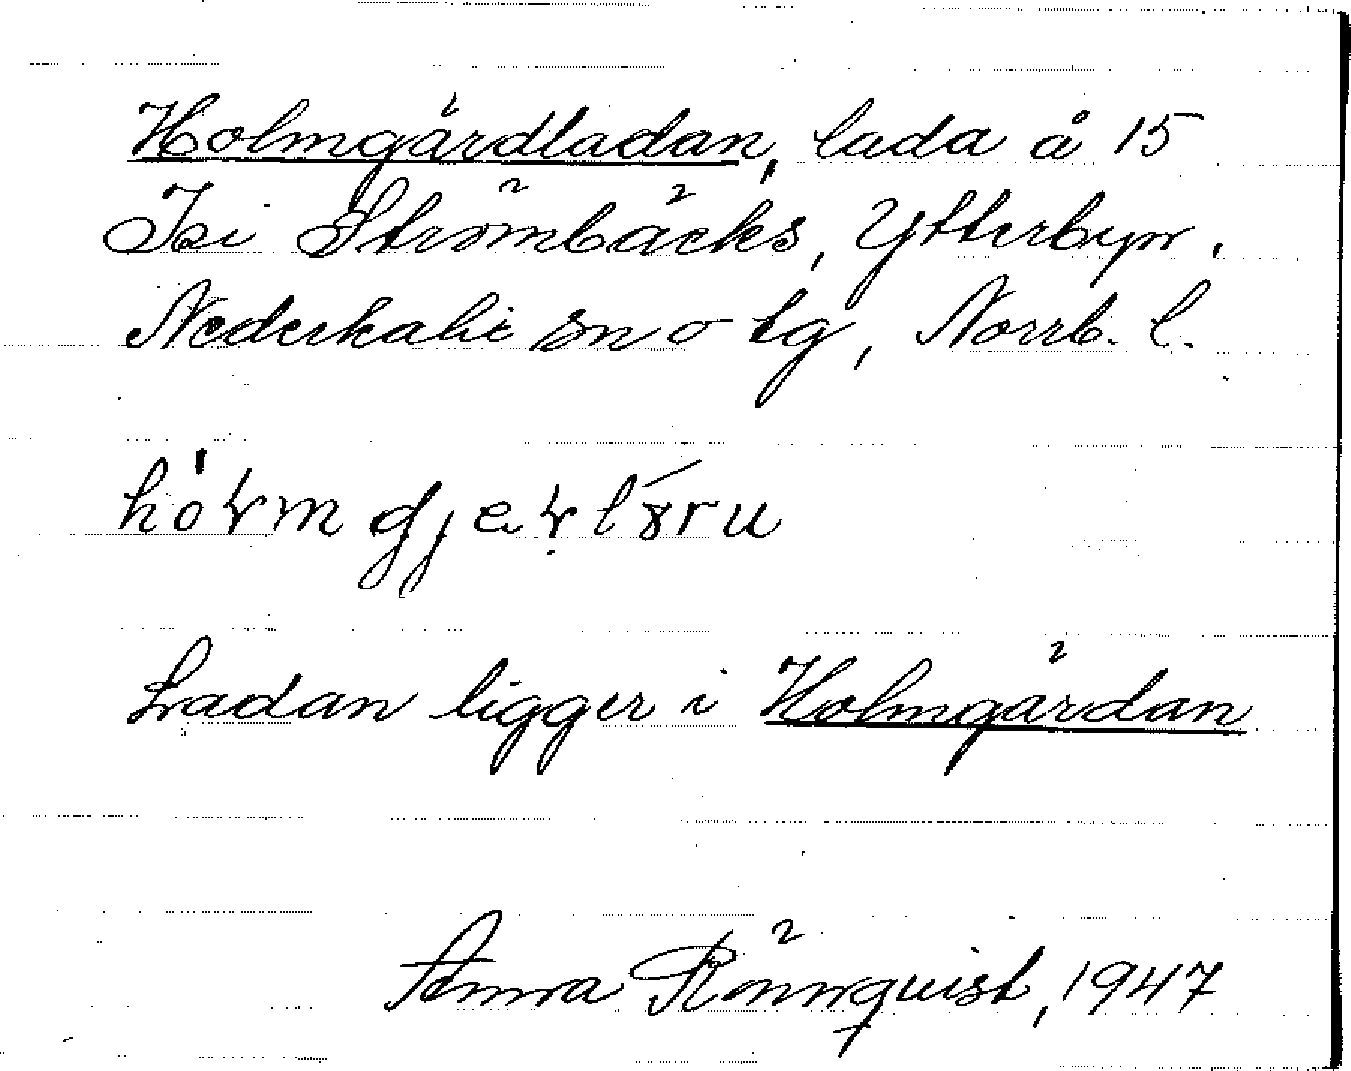 Holmgärdladan, lada å 15
Isi Strömbäcks, Ytterbyn,
Nederkalix sn o tg, Norrb. l.
Ladan ligger i Holmgärdan
Anna Rönnquist, 1947